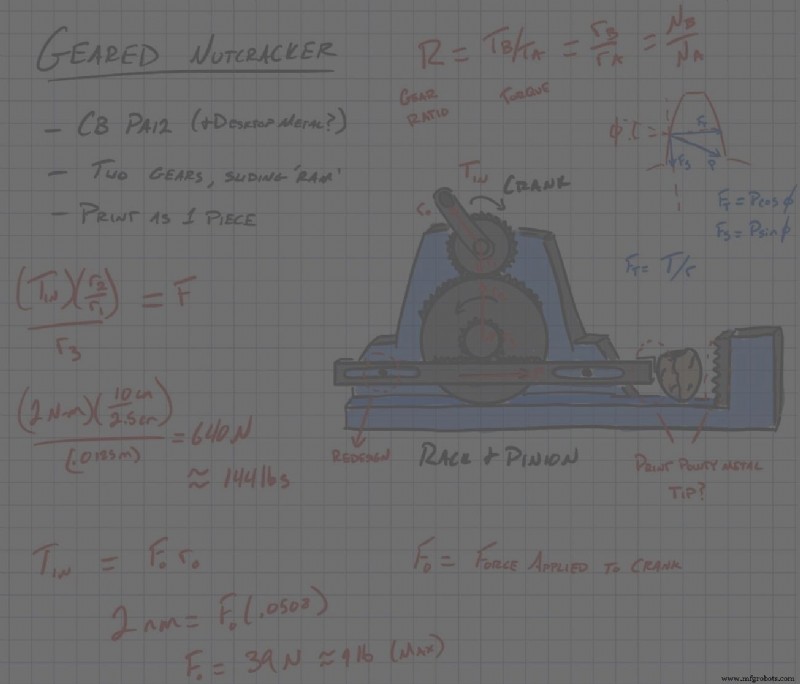 GEARED NUTCRACKER
- CB PA12 (+DESKTOP METAL?)
- TWO GEARS, SLIDING 'RAM'
- PRINT AS 1 PIECE
R = TB/TA = rB/rA = NB/NA
GEAR RATIO
TORQUE
Fs
P
FT = Pcos ϕ
Fs = Psin ϕ
FT = T/r
TIN
CRANK
ro
(TIN)(r2/r1) / r3 = F
(2Nm)(10cm/2.5cm) / (.0125m) = 640N
≈ 144lbs
REDESIGN
RACK + PINION
PRINT POINTY METAL
TIP?
TIN = Fo ro
Fo = FORCE APPLIED TO CRANK
2 nm = Fo (.0508)
Fo = 39N ≈ 9lb (MAX)
www.mfgrobots.com